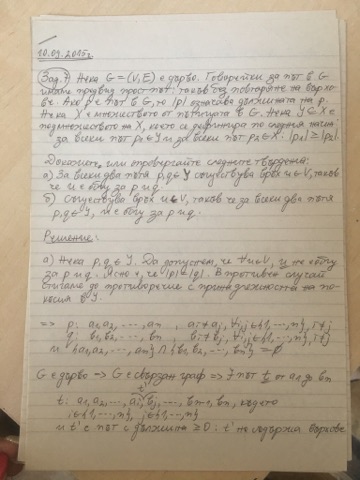 10.09.2015г.
Зад.7 Нека G=(V,E) е дърво. Говорейки за път в G
имаме предвид прост път, такъв без повтаряне на върхо-
ве. Ако p е път в G, то |p| означава дължината на p.
Нека X е множеството от пътищата в G. Нека Y⊆X е
подмножеството на X, което се дефинира по следния начин:
за всеки път p₁∈Y и за всеки път p₂∈X: |p₁|≥|p₂|.
Докажете или опровергайте следните твърдения:
а) За всеки два пътя p,q∈Y съществува връх u∈V, такъв
че u е общ за p и q.
б) Съществува връх u∈V, такъв че за всеки два пътя
p,q∈Y, u е общ за p и q.
Решение:
а) Нека p,q∈Y. Да допуснем, че ∀u∈V, u не е общ
за p и q. Ясно е, че |p|=|q|. В противен случай
стигаме до противоречие с принадлежността на по-
късия в Y.
=> p: a₁,a₂,...,aₙ , aᵢ≠aⱼ, ∀i,j∈{1,...,n}, i≠j
q: b₁,b₂,...,bₙ , bᵢ≠bⱼ, ∀i,j∈{1,...,n}, i≠j
и {a₁,a₂,...,aₙ}∩{b₁,b₂,...,bₙ}=∅
G е дърво => G е свързан граф => ∃ път t от a₁ до bₙ
t: a₁,a₂,...,aᵢ, bⱼ,...,bₙ₋₁,bₙ, където
i∈{1,...,n}, j∈{1,...,n}
и t' е път с дължина ≥0: t' не съдържа върхове